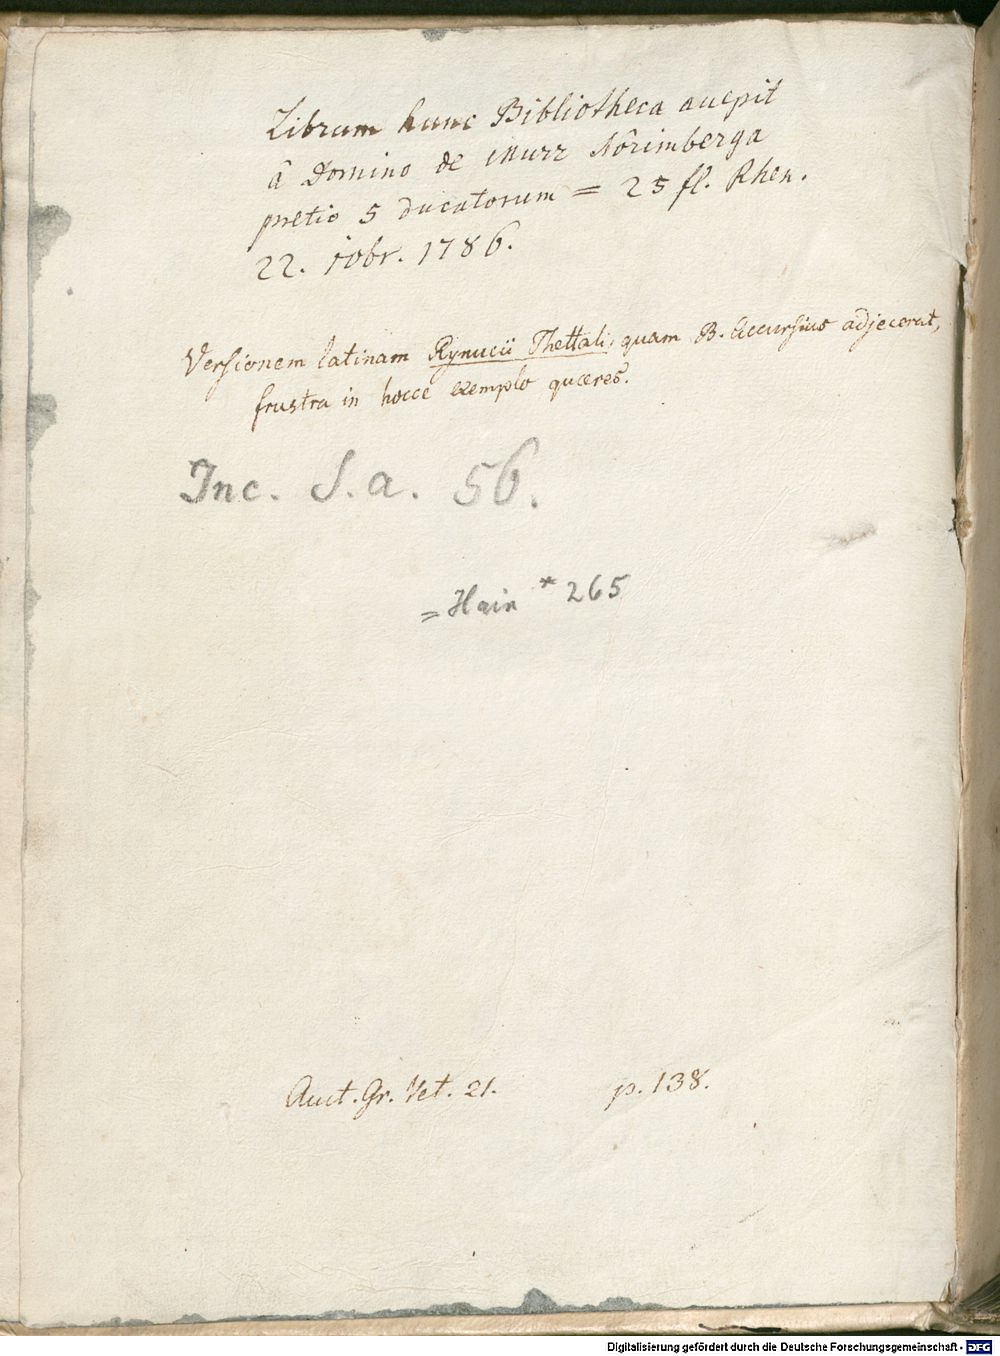 Librum hunc Bibliotheca accepit
â Domino de Murr Nôrimberga
pretio 5 ducatorum = 25 fl. Rhen.
22. 10br. 1786.
Versionem latinam Rynucii Thettali, quam B. Accursius adjecerat,
frustra in hocce exemplo quæres.
Inc. S. a. 56.
= Hain * 265
Auct. Gr. Vet. 21. p. 138.
Digitalisierung gefördert durch die Deutsche Forschungsgemeinschaft - DFG